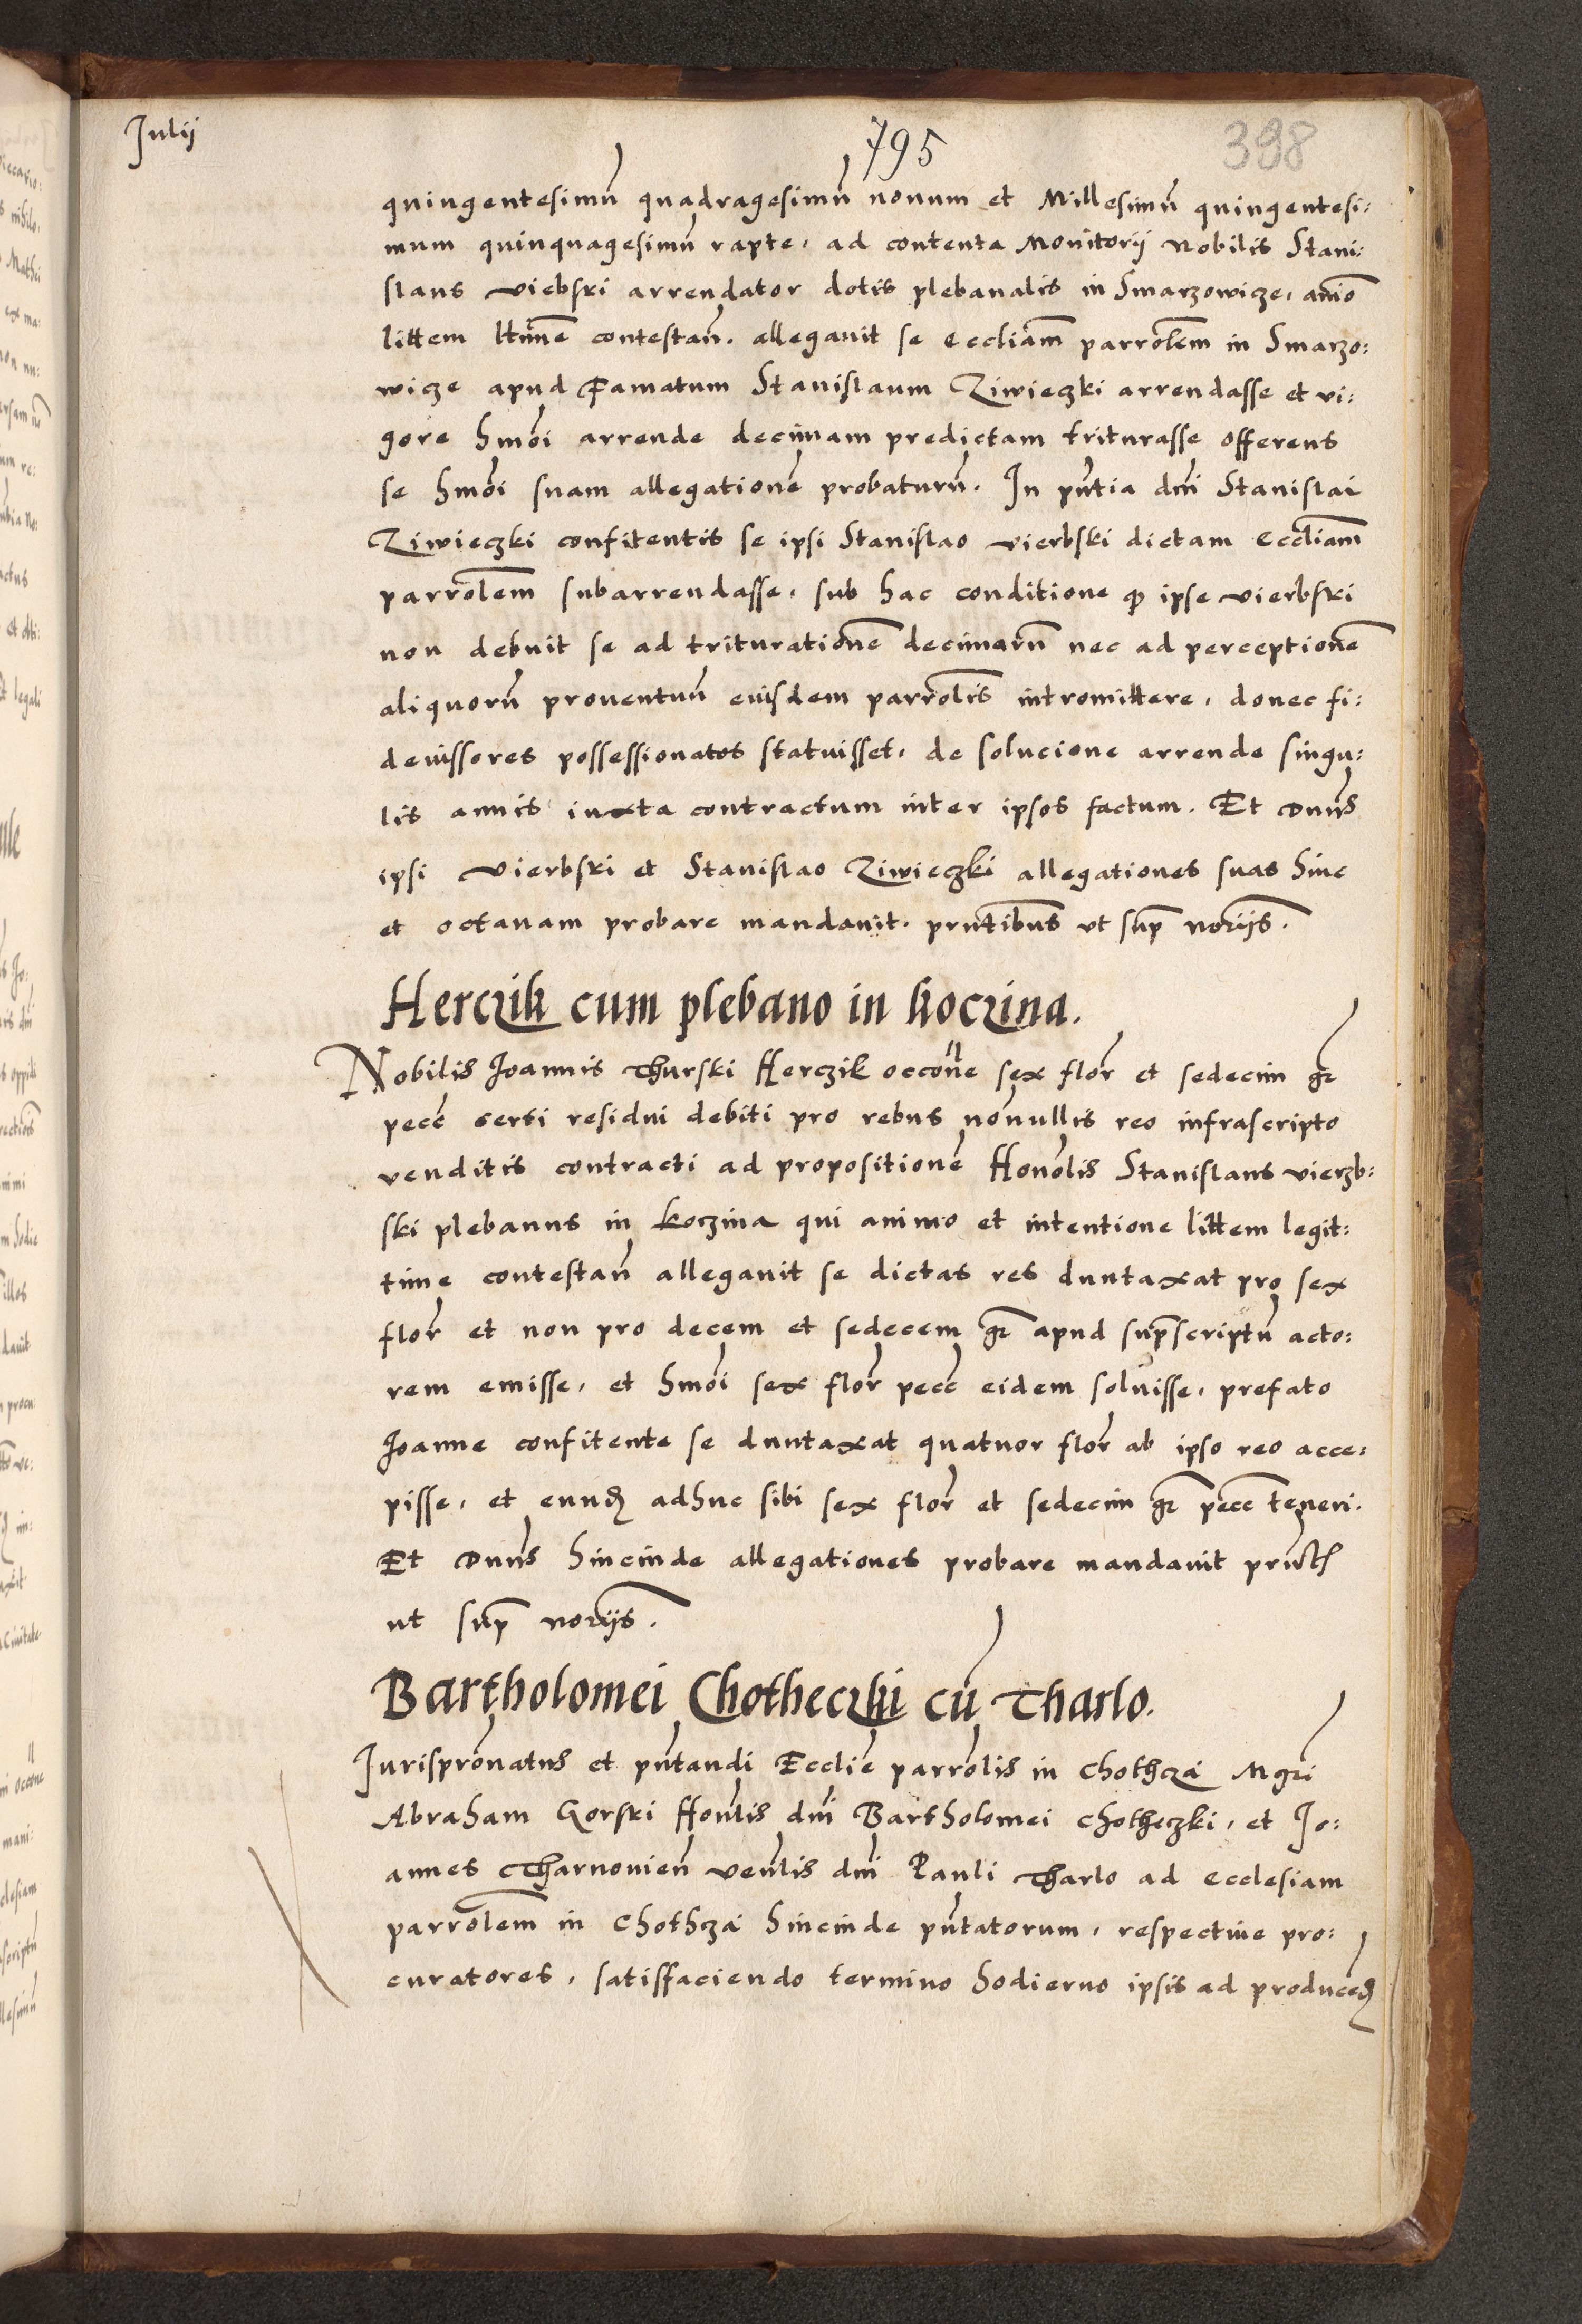 Julij
795
398
quingentesimū quadragesimū nonum et Millesimū quingentesi:
mum quinquagesimū rapte, ad contenta Monitorij Nobilis Stani:
slaus Viebski arrendator dotis plebanalis in Smarzowicze, anīo
littem lttimē contestañ. allegauit se eccliam̄ parrolem̄ in Smarzo:
wicze apud Famatum Stanislaum Ziwieczki arrendasse et vi:
gore hmōi arrende decimam predictam triturasse offerens
se hmōi suam allegationē probaturū. In pñtia dnī Stanislai
Ziwieczki confitentis se ipsi Stanislao Vierbski dictam eccliam̄
parrolem̄ subarrendasse, sub hac conditione qꝫ ipse Vierbski
non debuit se ad triturationē decimarū nec ad perceptionē
aliquorū prouentuū eiusdem parrolis̄ intromittere, donec fi:
deiussores possessionatos statuisset, de solucione arrende singu:
lis annis iuxta contractum inter ipsos factum. Et Dnūs
ipsi Vierbski et Stanislao Ziwieczki allegationes suas hinc
et octauam probare mandauit. prn̄tibus vt sup̄ norijs̄.
Herczik cum plebano in Koczina.
Nobilis Joannis Thurski Herczik occōne sex flor̄ et sedecim gr̄
pecc̄ certi residui debiti pro rebus nōnullis reo infrascripto
venditis contracti ad propositionē Honōlis Stanislaus Vierzb:
ski plebanus in Koczina qui animo et intentione littem legit:
time contestañ allegauit se dictas res duntaxat pro sex
flor̄ et non pro decem et sedecem gr̄ apud sup̄scriptū acto:
rem emisse, et hmōi sex flor̄ pecc̄ eidem soluisse, prefato
Joanne confitente se duntaxat quatuor flor̄ ab ipso reo acce:
pisse, et eundꝫ adhuc sibi sex flor̄ et sedecim gr̄ pecc̄ teneri.
Et Dnūs hincinde allegationes probare mandauit prn̄tibꝫ
ut sup̄ norijs̄.
Bartholomei Chotheczki cū Tharlo.
Jurisprōnatus et pñtandi Ecclīe parrōlis in Chothcza Mgrī
Abraham Gorski Honl̄is dnī Bartholomei Chotheczki, et Jo:
annes Tharnovieñ Venl̄is dnī Pauli Tharlo ad ecclesiam
parrolem̄ in Chothcza hincinde pñtatorum, respectiue pro:
curatores, satisfaciendo termino hodierno ipsis ad producedꝫ